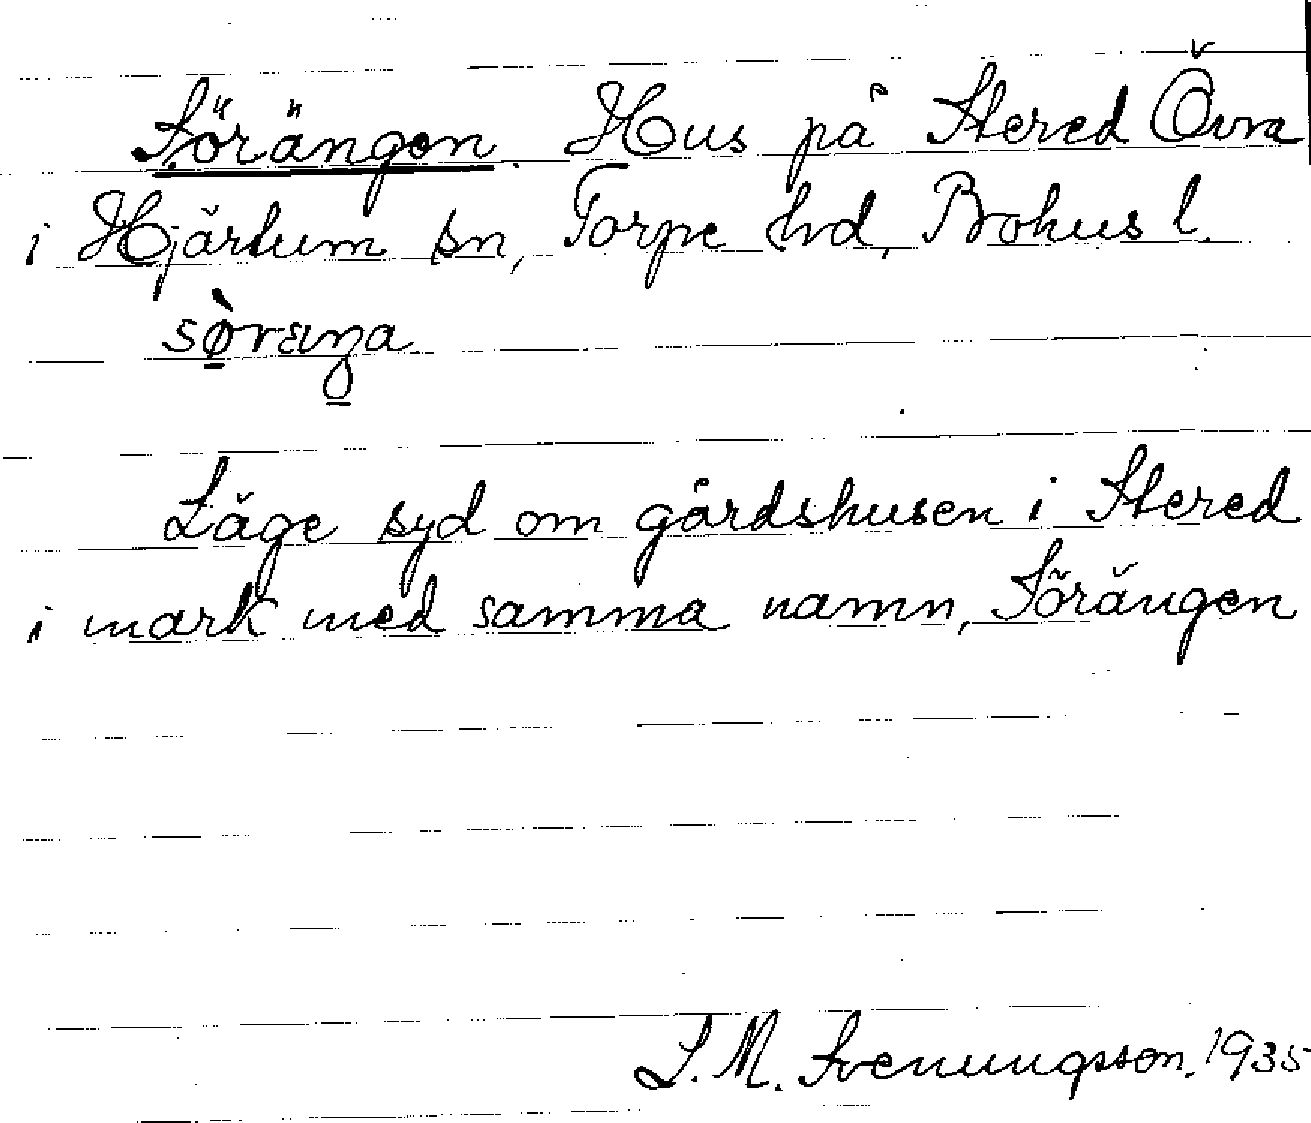 Sörängen. Hus på Stered Övra
i Hjärtum sn, Torpe hd, Bohus l.
sø̀ræŋa
Läge syd om gårdshusen i Stered
i mark med samma namn, Sörängen
S. M. Svenungsson. 1935